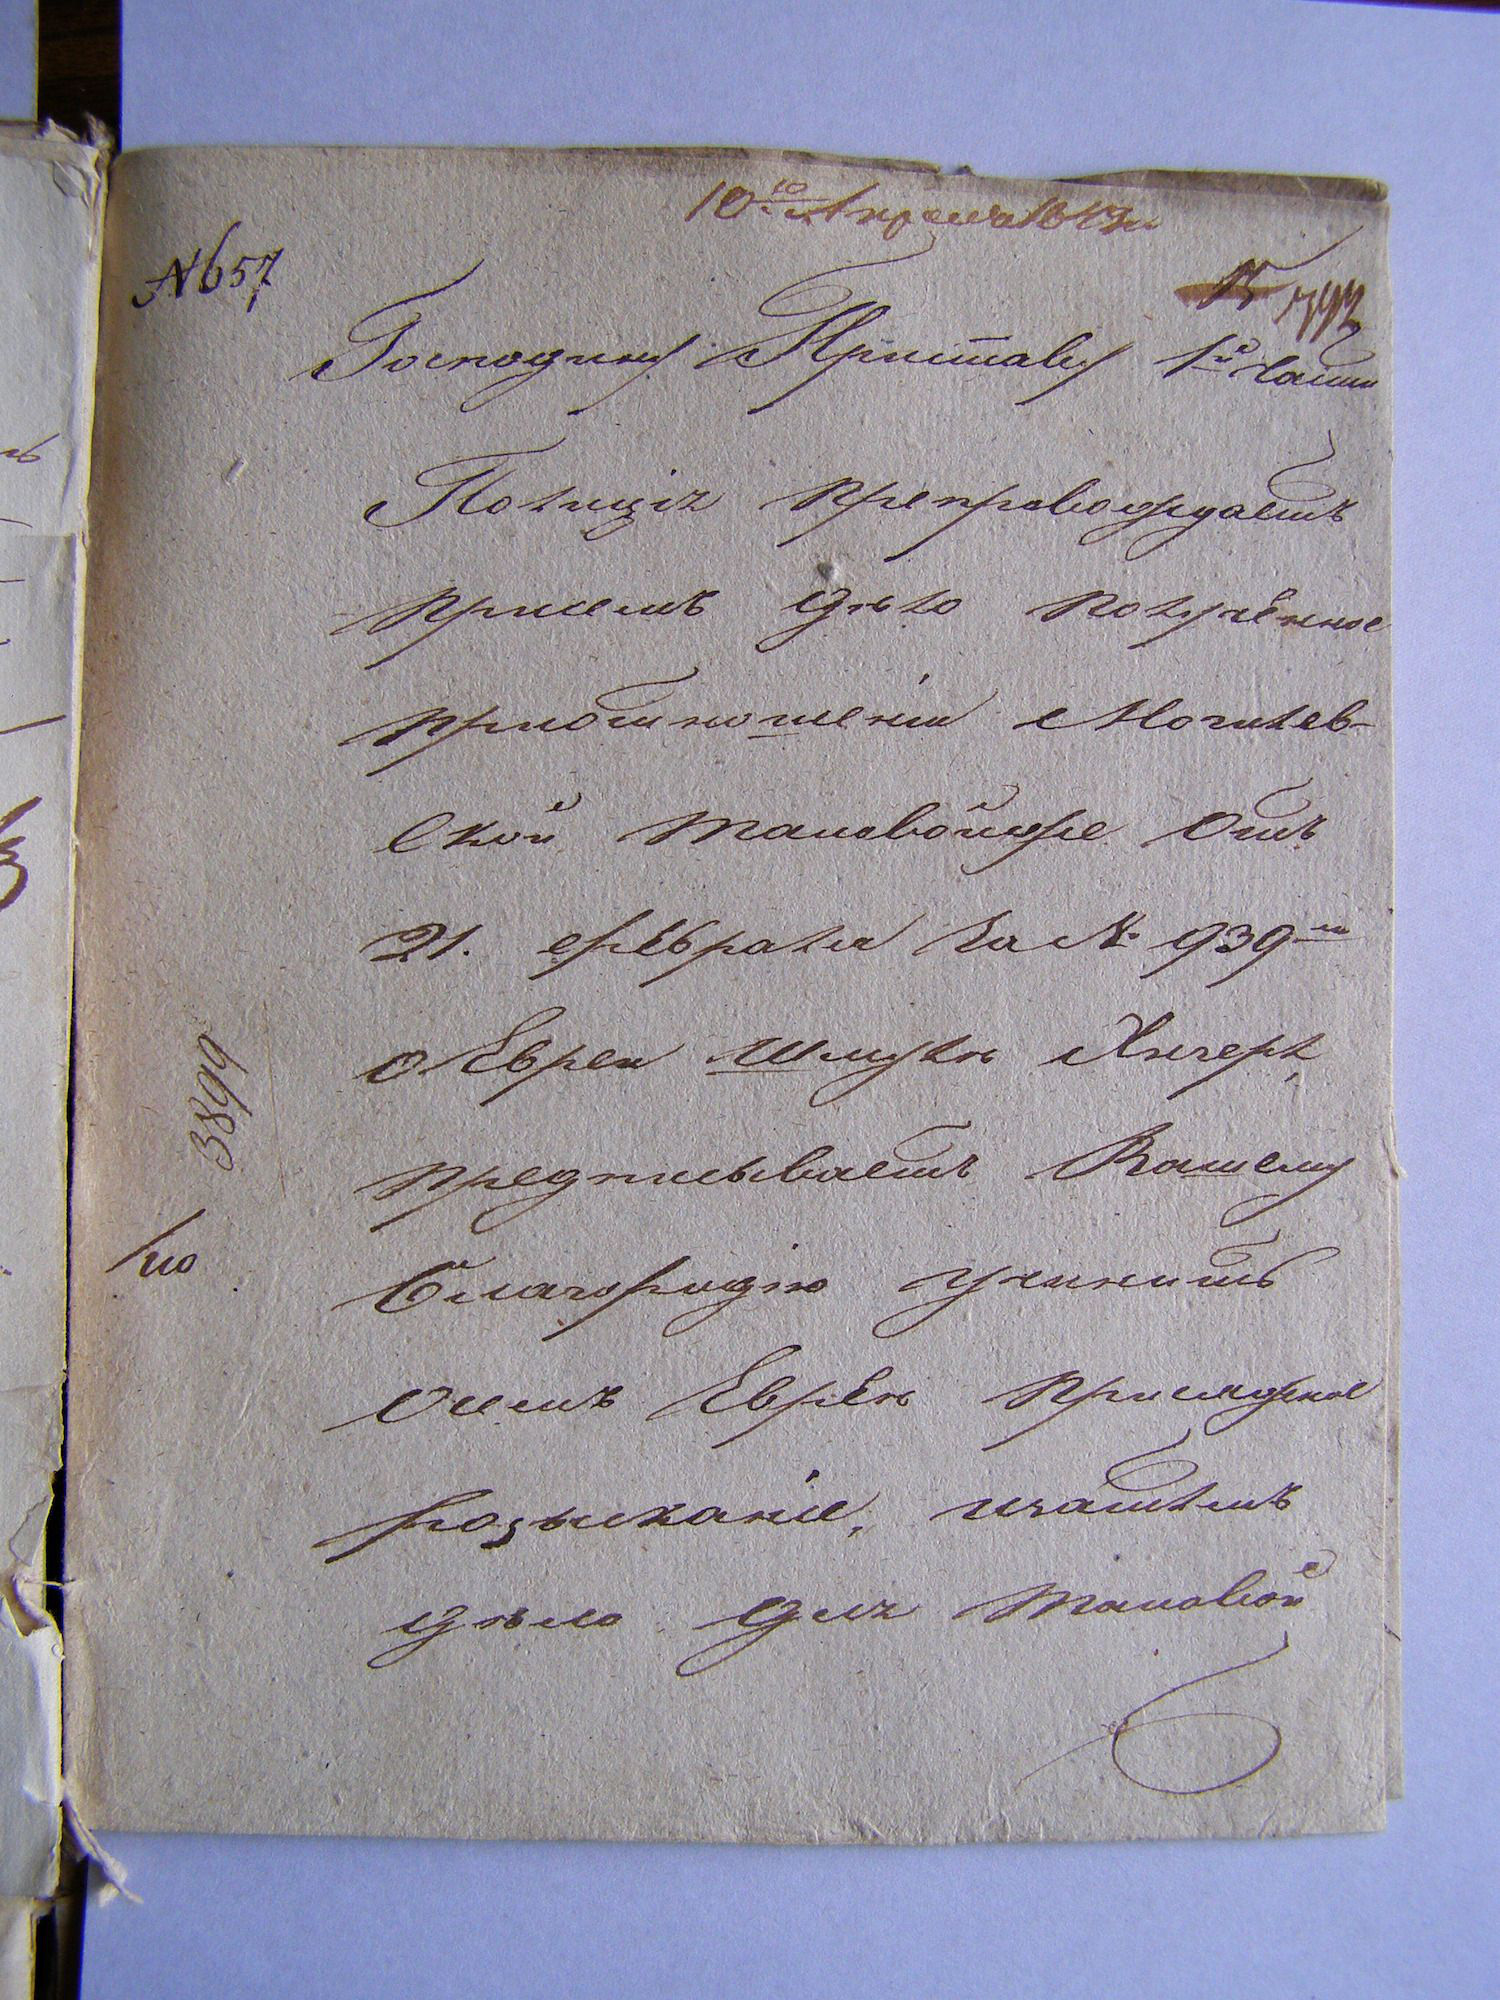 10го Апреля 1843
№ 657
Господину Приставу 1й части
Полиція препровождаетъ
присемъ дѣло полученное
приотношеніи Могилев-
ской таковойже отъ
21. февраля за № 939м
о Еврее Шмулѣ
предписываетъ Вашему
Благородію учинить
осемъ Евреѣ присяжное
розысканіе,
дѣло для таковой
3899